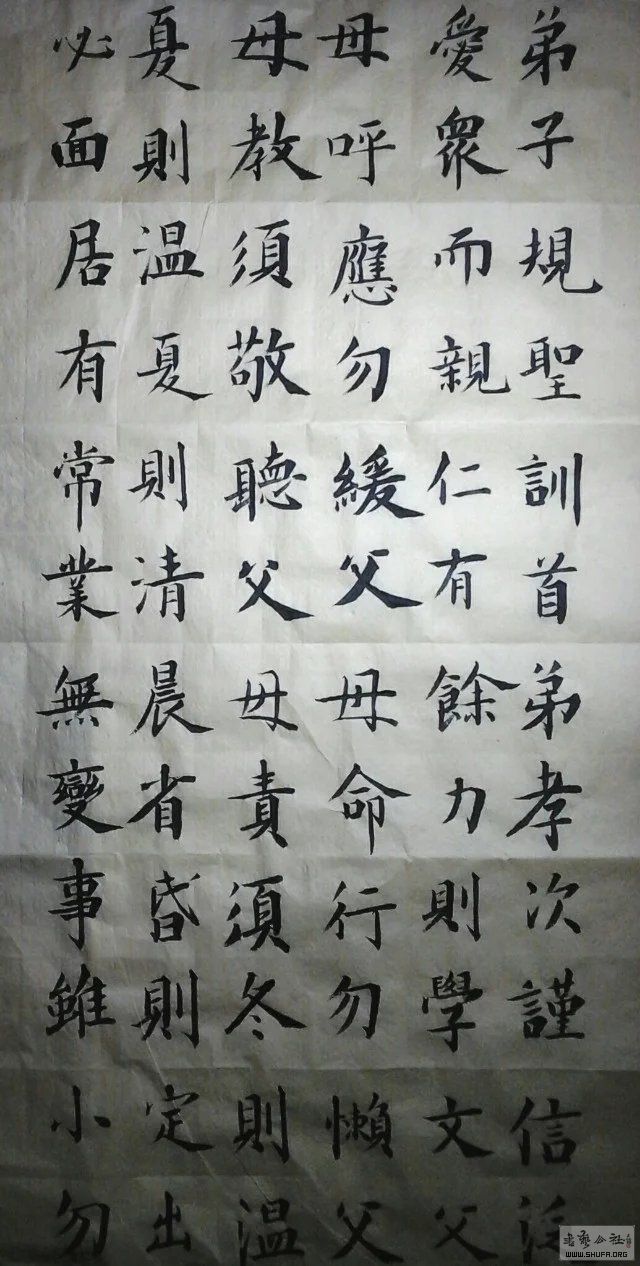 弟子規聖訓首弟孝次謹信泛
愛眾而親仁有餘力則學文父
母呼應勿緩父母命行勿懶父
母教須敬聽父母責須冬則温
夏則温夏則清晨省昏則定出
必面居有常業無變事雖小勿
WWW.SHUFA.ORG